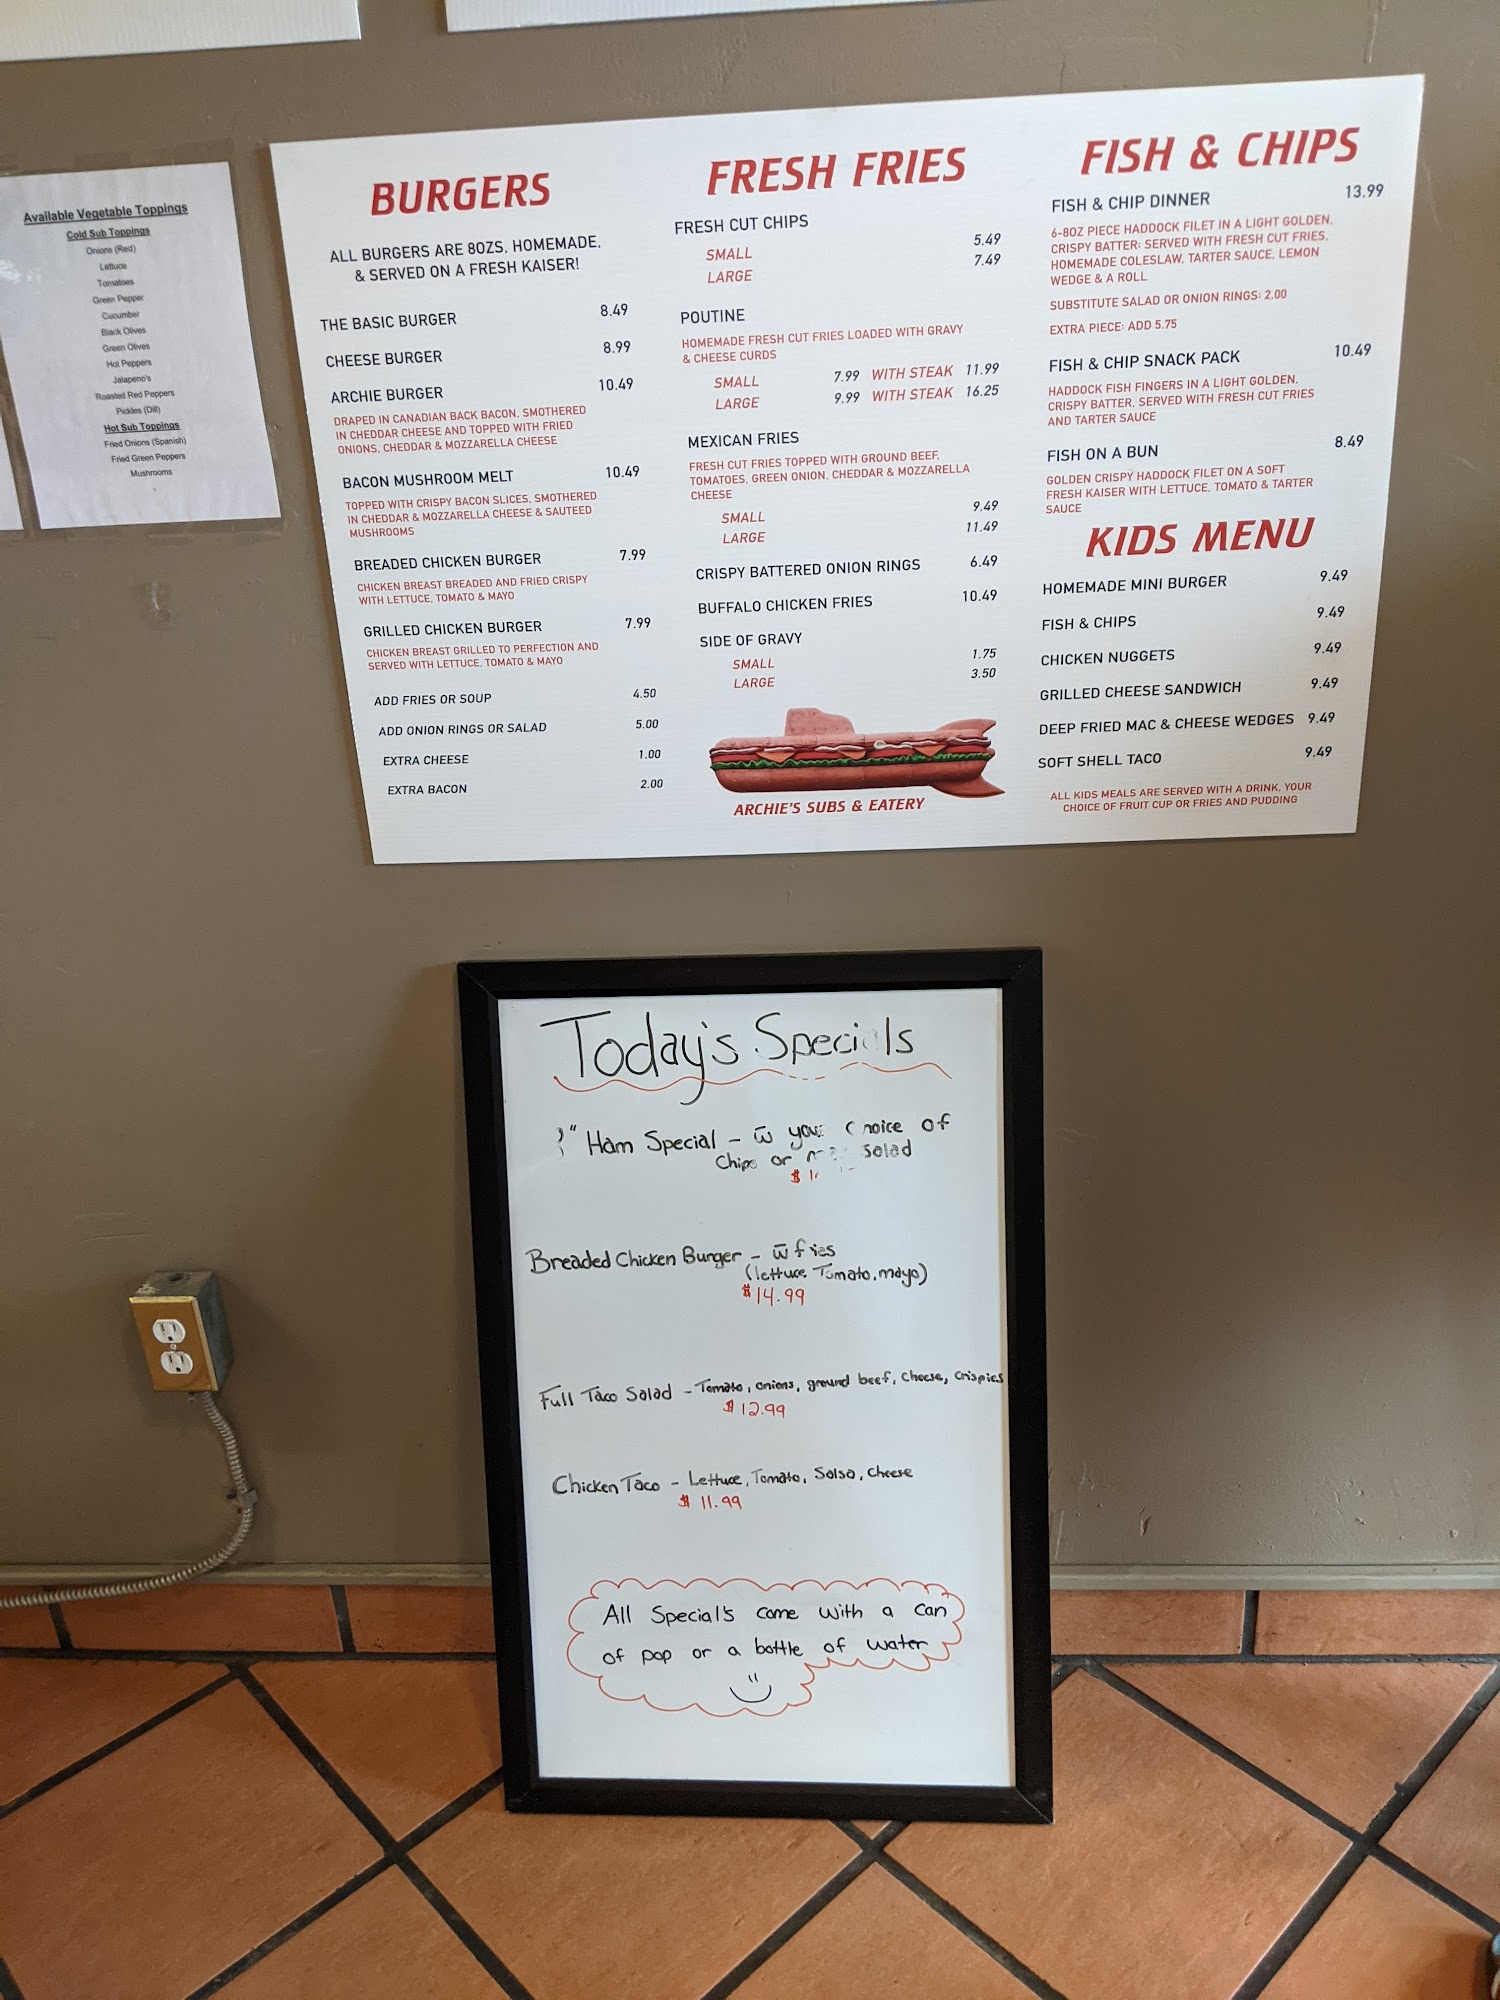 Available Vegetable Toppings
Cold Sub Toppings
Onions (Red)
Lettuce
Tomatoes
Green Pepper
Cucumber
Black Olives
Green Olives
Hot Peppers
Jalapeno's
Roasted Red Peppers
Pickles (Dill)
Hot Sub Toppings
Fried Onions (Spanish)
Fried Green Peppers
Mushrooms
BURGERS
ALL BURGERS ARE 8OZS, HOMEMADE,
& SERVED ON A FRESH KAISER!
THE BASIC BURGER 8.49
CHEESE BURGER 8.99
ARCHIE BURGER 10.49
DRAPED IN CANADIAN BACK BACON, SMOTHERED
IN CHEDDAR CHEESE AND TOPPED WITH FRIED
ONIONS, CHEDDAR & MOZZARELLA CHEESE
BACON MUSHROOM MELT 10.49
TOPPED WITH CRISPY BACON SLICES, SMOTHERED
IN CHEDDAR & MOZZARELLA CHEESE & SAUTEED
MUSHROOMS
BREADED CHICKEN BURGER 7.99
CHICKEN BREAST BREADED AND FRIED CRISPY
WITH LETTUCE, TOMATO & MAYO
GRILLED CHICKEN BURGER 7.99
CHICKEN BREAST GRILLED TO PERFECTION AND
SERVED WITH LETTUCE, TOMATO & MAYO
ADD FRIES OR SOUP 4.50
ADD ONION RINGS OR SALAD 5.00
EXTRA CHEESE 1.00
EXTRA BACON 2.00
FRESH FRIES
FRESH CUT CHIPS
SMALL 5.49
LARGE 7.49
POUTINE
HOMEMADE FRESH CUT FRIES LOADED WITH GRAVY
& CHEESE CURDS
SMALL 7.99 WITH STEAK 11.99
LARGE 9.99 WITH STEAK 16.25
MEXICAN FRIES
FRESH CUT FRIES TOPPED WITH GROUND BEEF,
TOMATOES, GREEN ONION, CHEDDAR & MOZZARELLA
CHEESE
SMALL 9.49
LARGE 11.49
CRISPY BATTERED ONION RINGS 6.49
BUFFALO CHICKEN FRIES 10.49
SIDE OF GRAVY
SMALL 1.75
LARGE 3.50
ARCHIE'S SUBS & EATERY
FISH & CHIPS
FISH & CHIP DINNER 13.99
6-8OZ PIECE HADDOCK FILET IN A LIGHT GOLDEN,
CRISPY BATTER; SERVED WITH FRESH CUT FRIES,
HOMEMADE COLESLAW, TARTER SAUCE, LEMON
WEDGE & A ROLL
SUBSTITUTE SALAD OR ONION RINGS: 2.00
EXTRA PIECE: ADD 5.75
FISH & CHIP SNACK PACK 10.49
HADDOCK FISH FINGERS IN A LIGHT GOLDEN,
CRISPY BATTER, SERVED WITH FRESH CUT FRIES
AND TARTER SAUCE
FISH ON A BUN 8.49
GOLDEN CRISPY HADDOCK FILET ON A SOFT
FRESH KAISER WITH LETTUCE, TOMATO & TARTER
SAUCE
KIDS MENU
HOMEMADE MINI BURGER 9.49
FISH & CHIPS 9.49
CHICKEN NUGGETS 9.49
GRILLED CHEESE SANDWICH 9.49
DEEP FRIED MAC & CHEESE WEDGES 9.49
SOFT SHELL TACO 9.49
ALL KIDS MEALS ARE SERVED WITH A DRINK, YOUR
CHOICE OF FRUIT CUP OR FRIES AND PUDDING
Today's Specials
Ham Special - w̄ your choice of
Chips or salad
Breaded Chicken Burger - w̄ fries
(lettuce Tomato, mayo)
$14.99
Full Taco Salad - Tomato, onions, ground beef, cheese, crispies
$12.99
Chicken Taco - Lettuce, Tomato, Salsa, cheese
$11.99
All Special's come with a can
of pop or a bottle of water